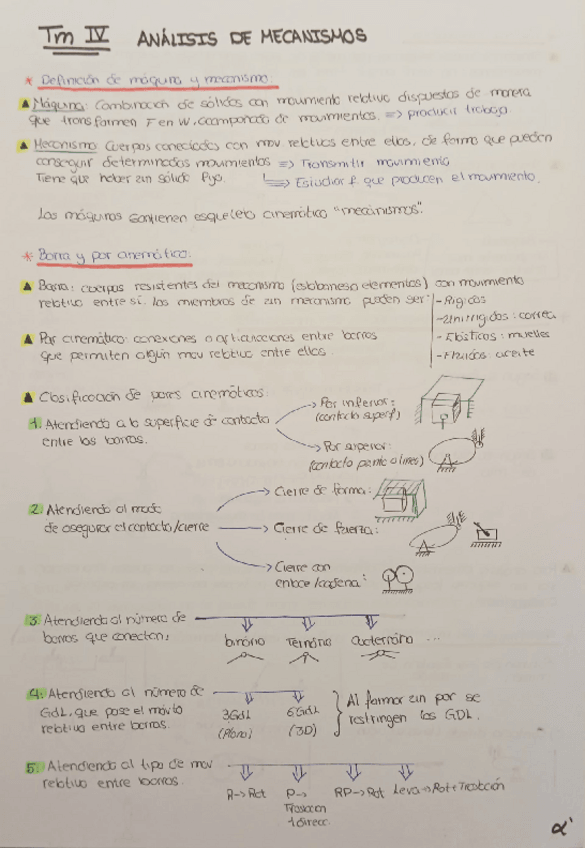 Tm IV ANÁLISIS DE MECANISMOS
* Definición de máquina y mecanismo:
Máquina: Combinación de sólidos con movimiento relativo dispuestos de manera
que transformen F en W, acompañado de movimientos. => producir trabajo
Mecanismo: Cuerpos conectados con mov relativos entre ellos, de forma que pueden
conseguir determinados movimientos => Transmitir movimiento
Tiene que haber un sólido fijo. => Estudiar f que producen el movimiento.
Las máquinas contienen esqueleto cinemático "mecanismos".
* Barra y par cinemático:
Barra: cuerpos resistentes del mecanismo (eslabones o elementos) con movimiento
relativo entre sí. Los miembros de un mecanismo pueden ser:
- Rígidos
- Unirrígidos: correa
- Elásticos: muelles
- Fluidos: aceite
Par cinemático: conexiones o articulaciones entre barras
que permiten algún mov relativo entre ellas.
Clasificación de pares cinemáticos
1. Atendiendo a la superficie de contacto
entre las barras.
Par inferior:
(contacto superf)
Par superior:
(contacto punto o línea)
2. Atendiendo al modo
de asegurar el contacto/cierre
Cierre de forma:
Cierre de fuerza:
Cierre con
enlace/cadena:
3. Atendiendo al número de
barras que conectan:
binario Ternario Cuaternario ...
4. Atendiendo al número de
GdL que posee el movto
relativo entre barras.
3GdL
(Plano)
6GdL
(3D)
Al formar un par se
restringen los GDL.
5. Atendiendo al tipo de mov
relativo entre barras.
R -> Rot
P ->
Traslación
1 direcc.
RP -> Rot
Leva -> Rot + Traslación
α'